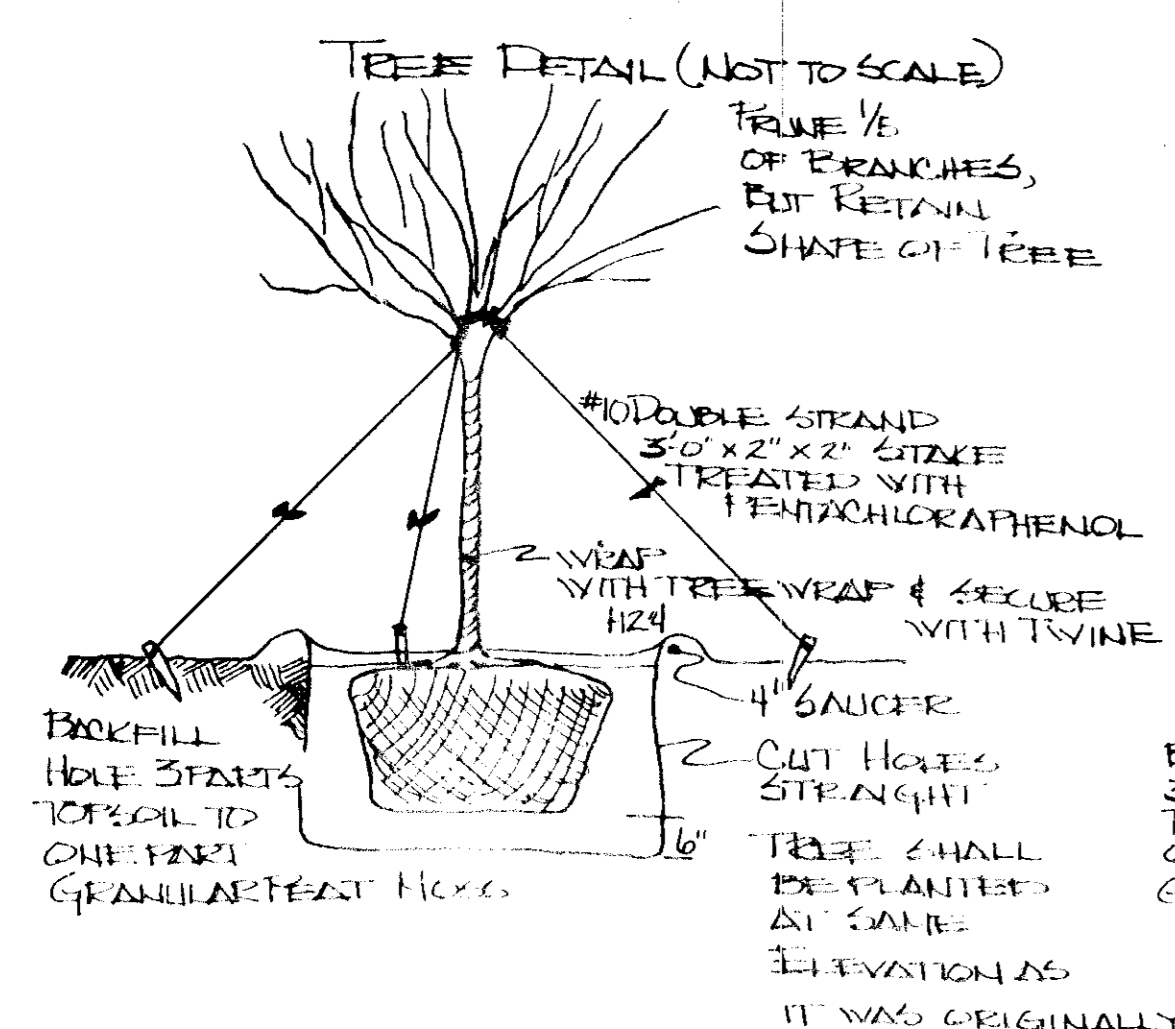 TREE DETAIL (NOT TO SCALE)
PRUNE 1/5
OF BRANCHES,
BUT RETAIN
SHAPE OF TREE
#10 DOUBLE STRAND
3'-0" X 2" X 2" STAKE
TREATED WITH
PENTACHLORAPHENOL
WRAP
WITH TREE WRAP & SECURE
WITH TWINE
4" SAUCER
CUT HOLES
STRAIGHT
6"
BACKFILL
HOLE 3 PARTS
TOPSOIL TO
ONE PART
GRANULAR PEAT MOSS
TREE SHALL
BE PLANTED
AT SAME
ELEVATION AS
IT WAS ORIGINALLY